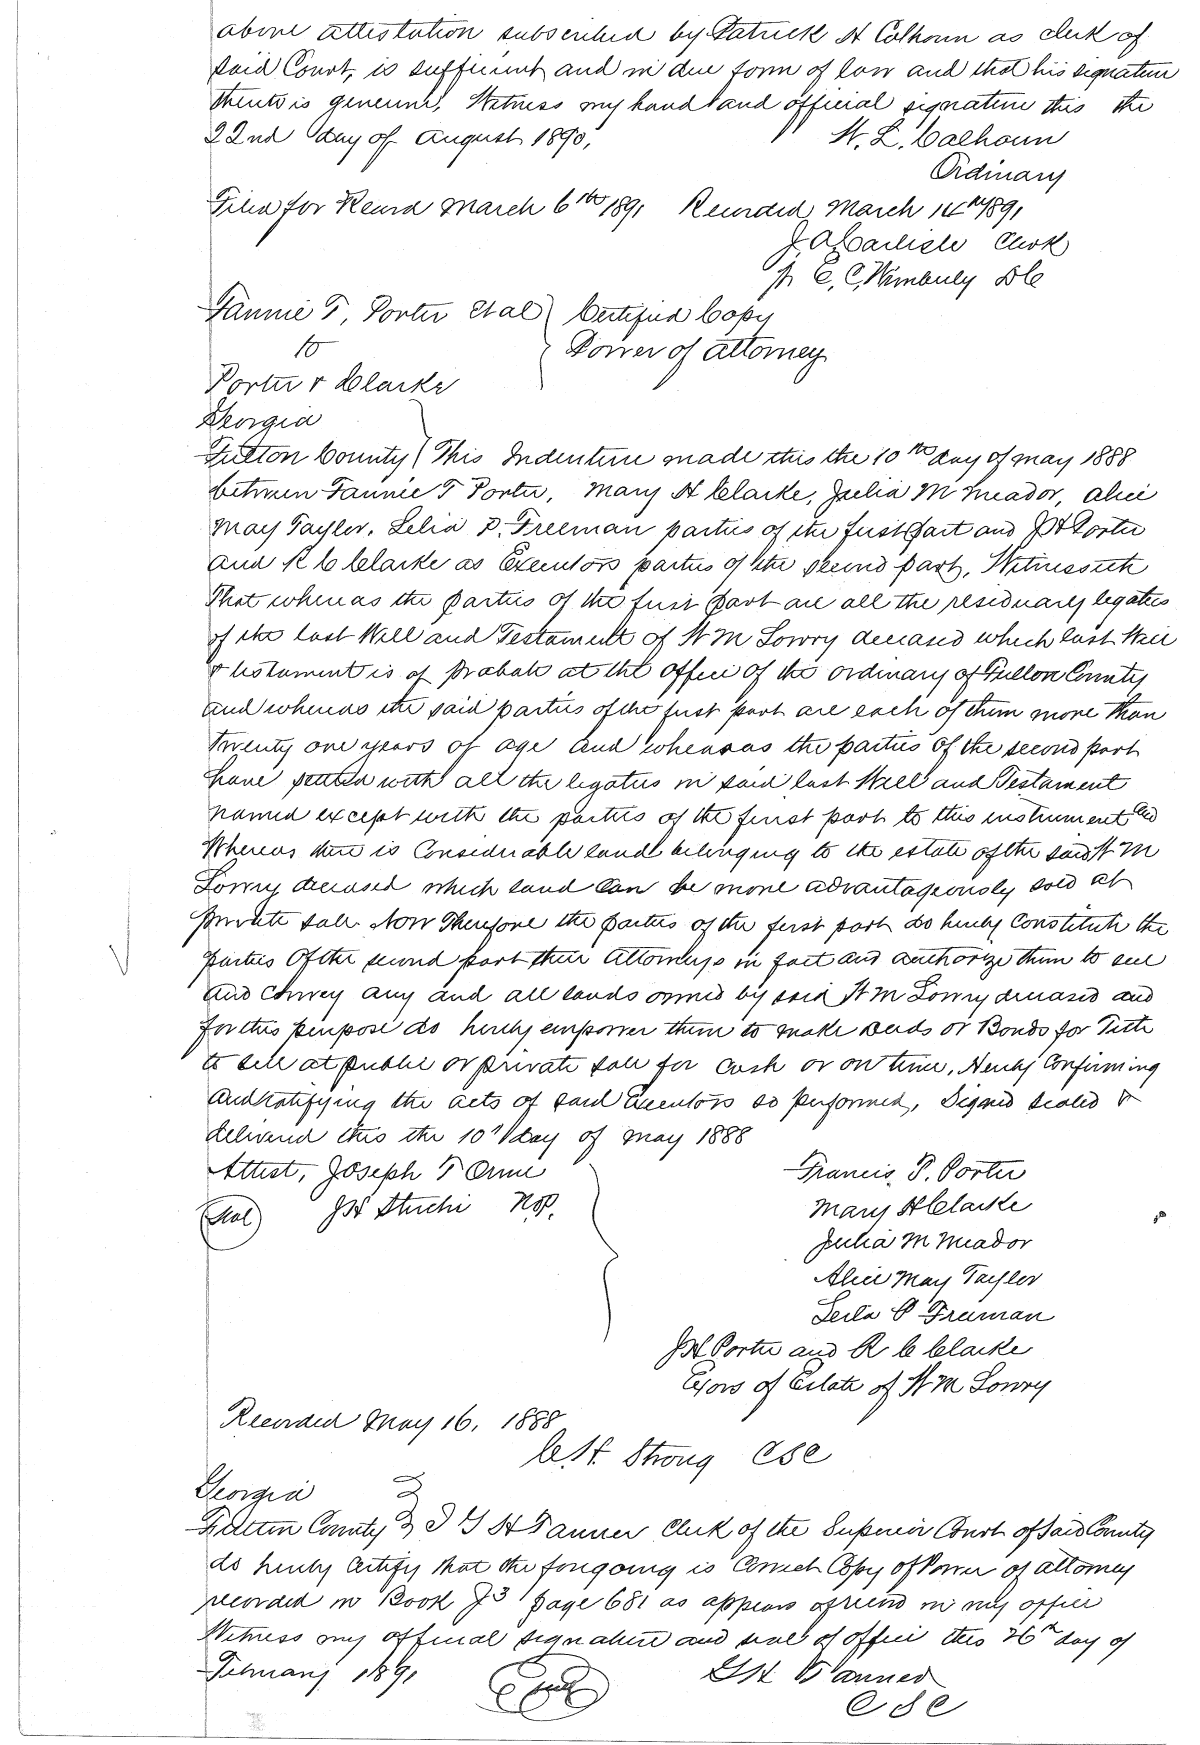 above attestation subscribed by Patrick H Calhoun as clerk of
said Court, is sufficient and in due form of law and that his signature
thereto is genuine, Witness my hand and official signature this the
22nd day of August 1890,
W. L. Calhoun
Ordinary
Filed for Record March 6th 1891 Recorded March 14th 1891
J. A. Carlisle Clerk
E. C. Wimberly D C
Fannie T, Porter et al Certified Copy
to Power of attorney
Porter & Clarke
Georgia
Fulton County This Indenture made this the 10th day of may 1888
between Fannie T Porter, Mary H Clarke, Julia M Meador, alice
May Taylor, Lelia P. Freeman parties of the first part and JH Porter
and R C Clarke as Executors parties of the second part, Witnesseth
That whereas the parties of the first part are all the residuary legatees
of the last Will and Testament of W M Lowry deceased which last Will
& testament is of probate at the office of the ordinary of Fulton County
and whereas the said parties of the first part are each of them more than
twenty one years of age and whereas the parties of the second part
have settled with all the legatees in said last Will and Testament
named except with the parties of the first part to this instrument and
Whereas there is Considerable land belonging to the estate of the said W M
Lowry deceased which land can be more advantageously sold at
private sale Now Therefore the parties of the first part do hereby Constitute the
parties Of the second part their Attorneys in fact and authorize them to sell
and Convey any and all lands owned by said W M Lowry deceased and
for this purpose do hereby empower them to make Deeds or Bonds for Title
to sell at public or private sale for cash or on time, Hereby Confirming
and ratifying the acts of said Executors so performed, Signed sealed &
delivered this the 10th day of may 1888
Attest, Joseph T Orme Francis. P. Porter
Seal JH N.P. Mary H Clarke
Julia M Meador
Alice May Taylor
Leila P Freeman
JH Porter and R C Clarke
Exors of Estate of W M Lowry
Recorded May 16, 1888
C. H. Strong C S C
Georgia
Fulton County I G H Tanner Clerk of the Superior Court of Said County
do hereby certify that the foregoing is Correct Copy of Power of attorney
recorded in Book J3 page 681 as appears of record in my office
Witness my official signature and seal of office this 26th day of
February 1891 Seal G H Tanner
C S C